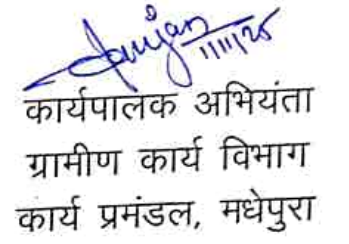 11/11/25
कार्यपालक अभियंता
ग्रामीण कार्य विभाग
कार्य प्रमंडल, मधेपुरा